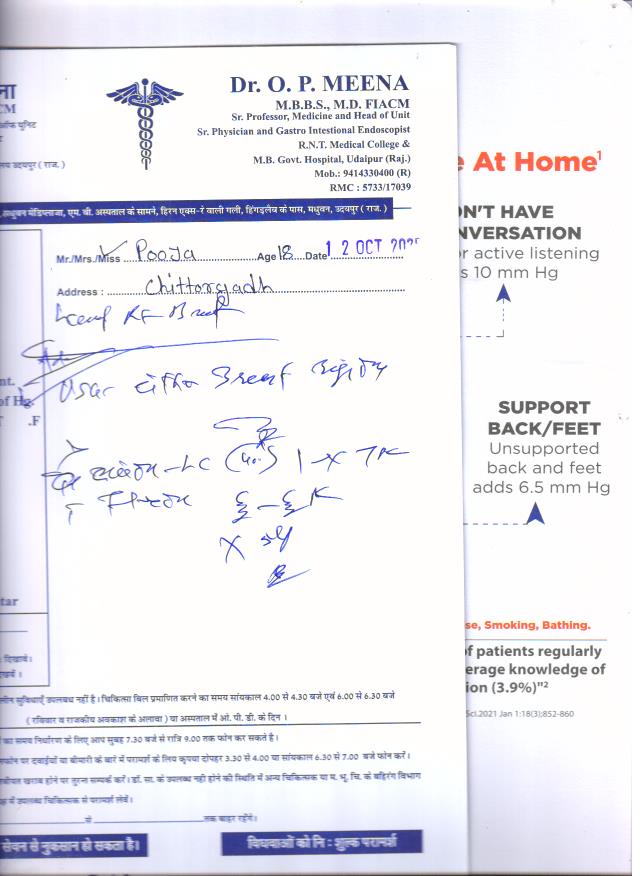 ना
CM
ऑफ यूनिट
लय उदयपुर ( राज.)
Dr. O. P. MEENA
M.B.B.S., M.D. FIACM
Sr. Professor, Medicine and Head of Unit
Sr. Physician and Gastro Intestional Endoscopist
R.N.T. Medical College &
M.B. Govt. Hospital, Udaipur (Raj.)
Mob.: 9414330400 (R)
RMC : 5733/17039
मधुबन मेडिप्लाजा, एम. बी. अस्पताल के सामने, हिरन एक्स-रे वाली गली, हिंगड़लैब के पास, मधुवन, उदयपुर ( राज. )
Mr./Mrs./Miss Pooja Age 18 Date 12 OCT
Address : Chittorgadh
nt.
of Hg.
.F
1 - X 7
tar
दिखावें।
खावें ।
लीन सुविधाएँ उपलब्ध नहीं है। चिकित्सा बिल प्रमाणित करने का समय सांयकाल 4.00 से 4.30 बजे एवं 6.00 से 6.30 बजे
( रविवार व राजकीय अवकाश के अलावा ) या अस्पताल में ओ. पी. डी. के दिन ।
का समय निर्धारण के लिए आप सुबह 7.30 बजे से रात्रि 9.00 तक फोन कर सकते है।
फोन पर दवाईयों या बीमारी के बारे में परामर्श के लिए कृपया दोपहर 3.30 से 4.00 या सांयकाल 6.30 से 7.00 बजे फोन करें।
बीयत खराब होने पर तुरन्त सम्पर्क करें। डॉ. सा. के उपलब्ध नही होने की स्थिति में अन्य चिकित्सक या म. भू. चि. के बहिरंग विभाग
में उपलब्ध चिकित्सक से परामर्श लेवें।
से तक बाहर रहेंगे।
सेवन से नुकसान हो सकता है।
विधवाओं को नि : शुल्क परामर्श
e At Home¹
ON'T HAVE
NVERSATION
r active listening
s 10 mm Hg
SUPPORT
BACK/FEET
Unsupported
back and feet
adds 6.5 mm Hg
se, Smoking, Bathing.
of patients regularly
erage knowledge of
ion (3.9%)"²
Sci.2021 Jan 1:18(3);852-860